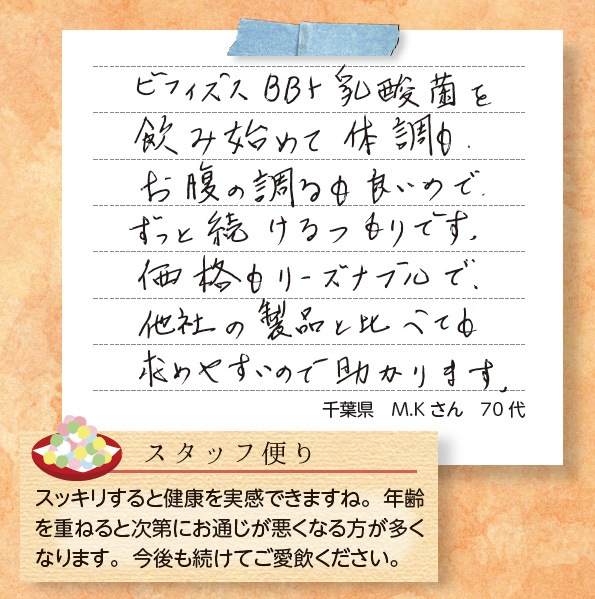 ビフィズスBB+乳酸菌を
飲み始めて体調も、
お腹の調るも良いので、
ずっと続けるつもりです。
価格もリーズナブルで、
他社の製品と比べても
求めやすいので助かります。
千葉県 M.Kさん 70代
スタッフ便り
スッキリすると健康を実感できますね。年齢
を重ねると次第にお通じが悪くなる方が多く
なります。今後も続けてご愛飲ください。